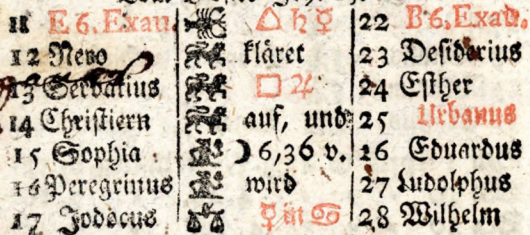 11 E 6. Exau. △ ♄ ☿ 22 B 6. Exau.
12 Nero kläret 23 Desiderius
13 Servatius □ ♃ 24 Esther
14 Christiern auf, und 25 Urbanus
15 Sophia ☽ 6,36 v. 26 Eduardus
16 Peregrinus wird 27 Ludolphus
17 Jodocus ♀ in ♋ 28 Wilhelm